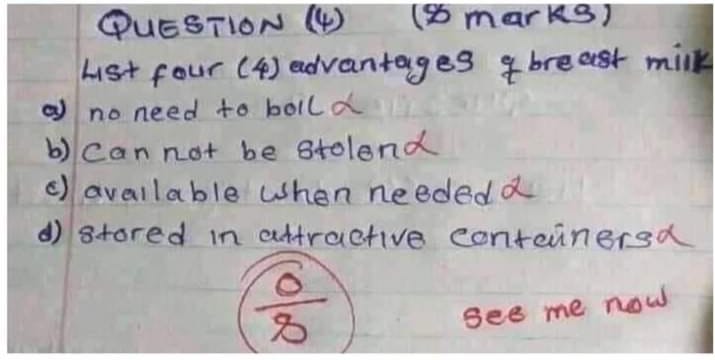 QUESTION (4) (8 marks)
List four (4) advantages of breast milk
a) no need to boil
b) Can not be stolen
c) available when needed
d) stored in attractive containers
0
8
see me now